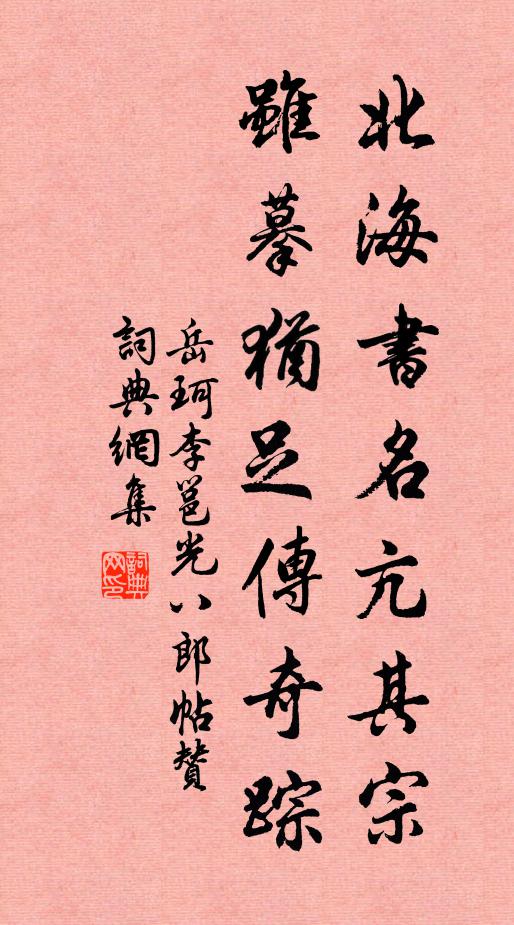 北海書名亢其宗
雖摹猶足傳奇踪
岳珂李邕光八郎帖贊
詞典網集
詞典網印